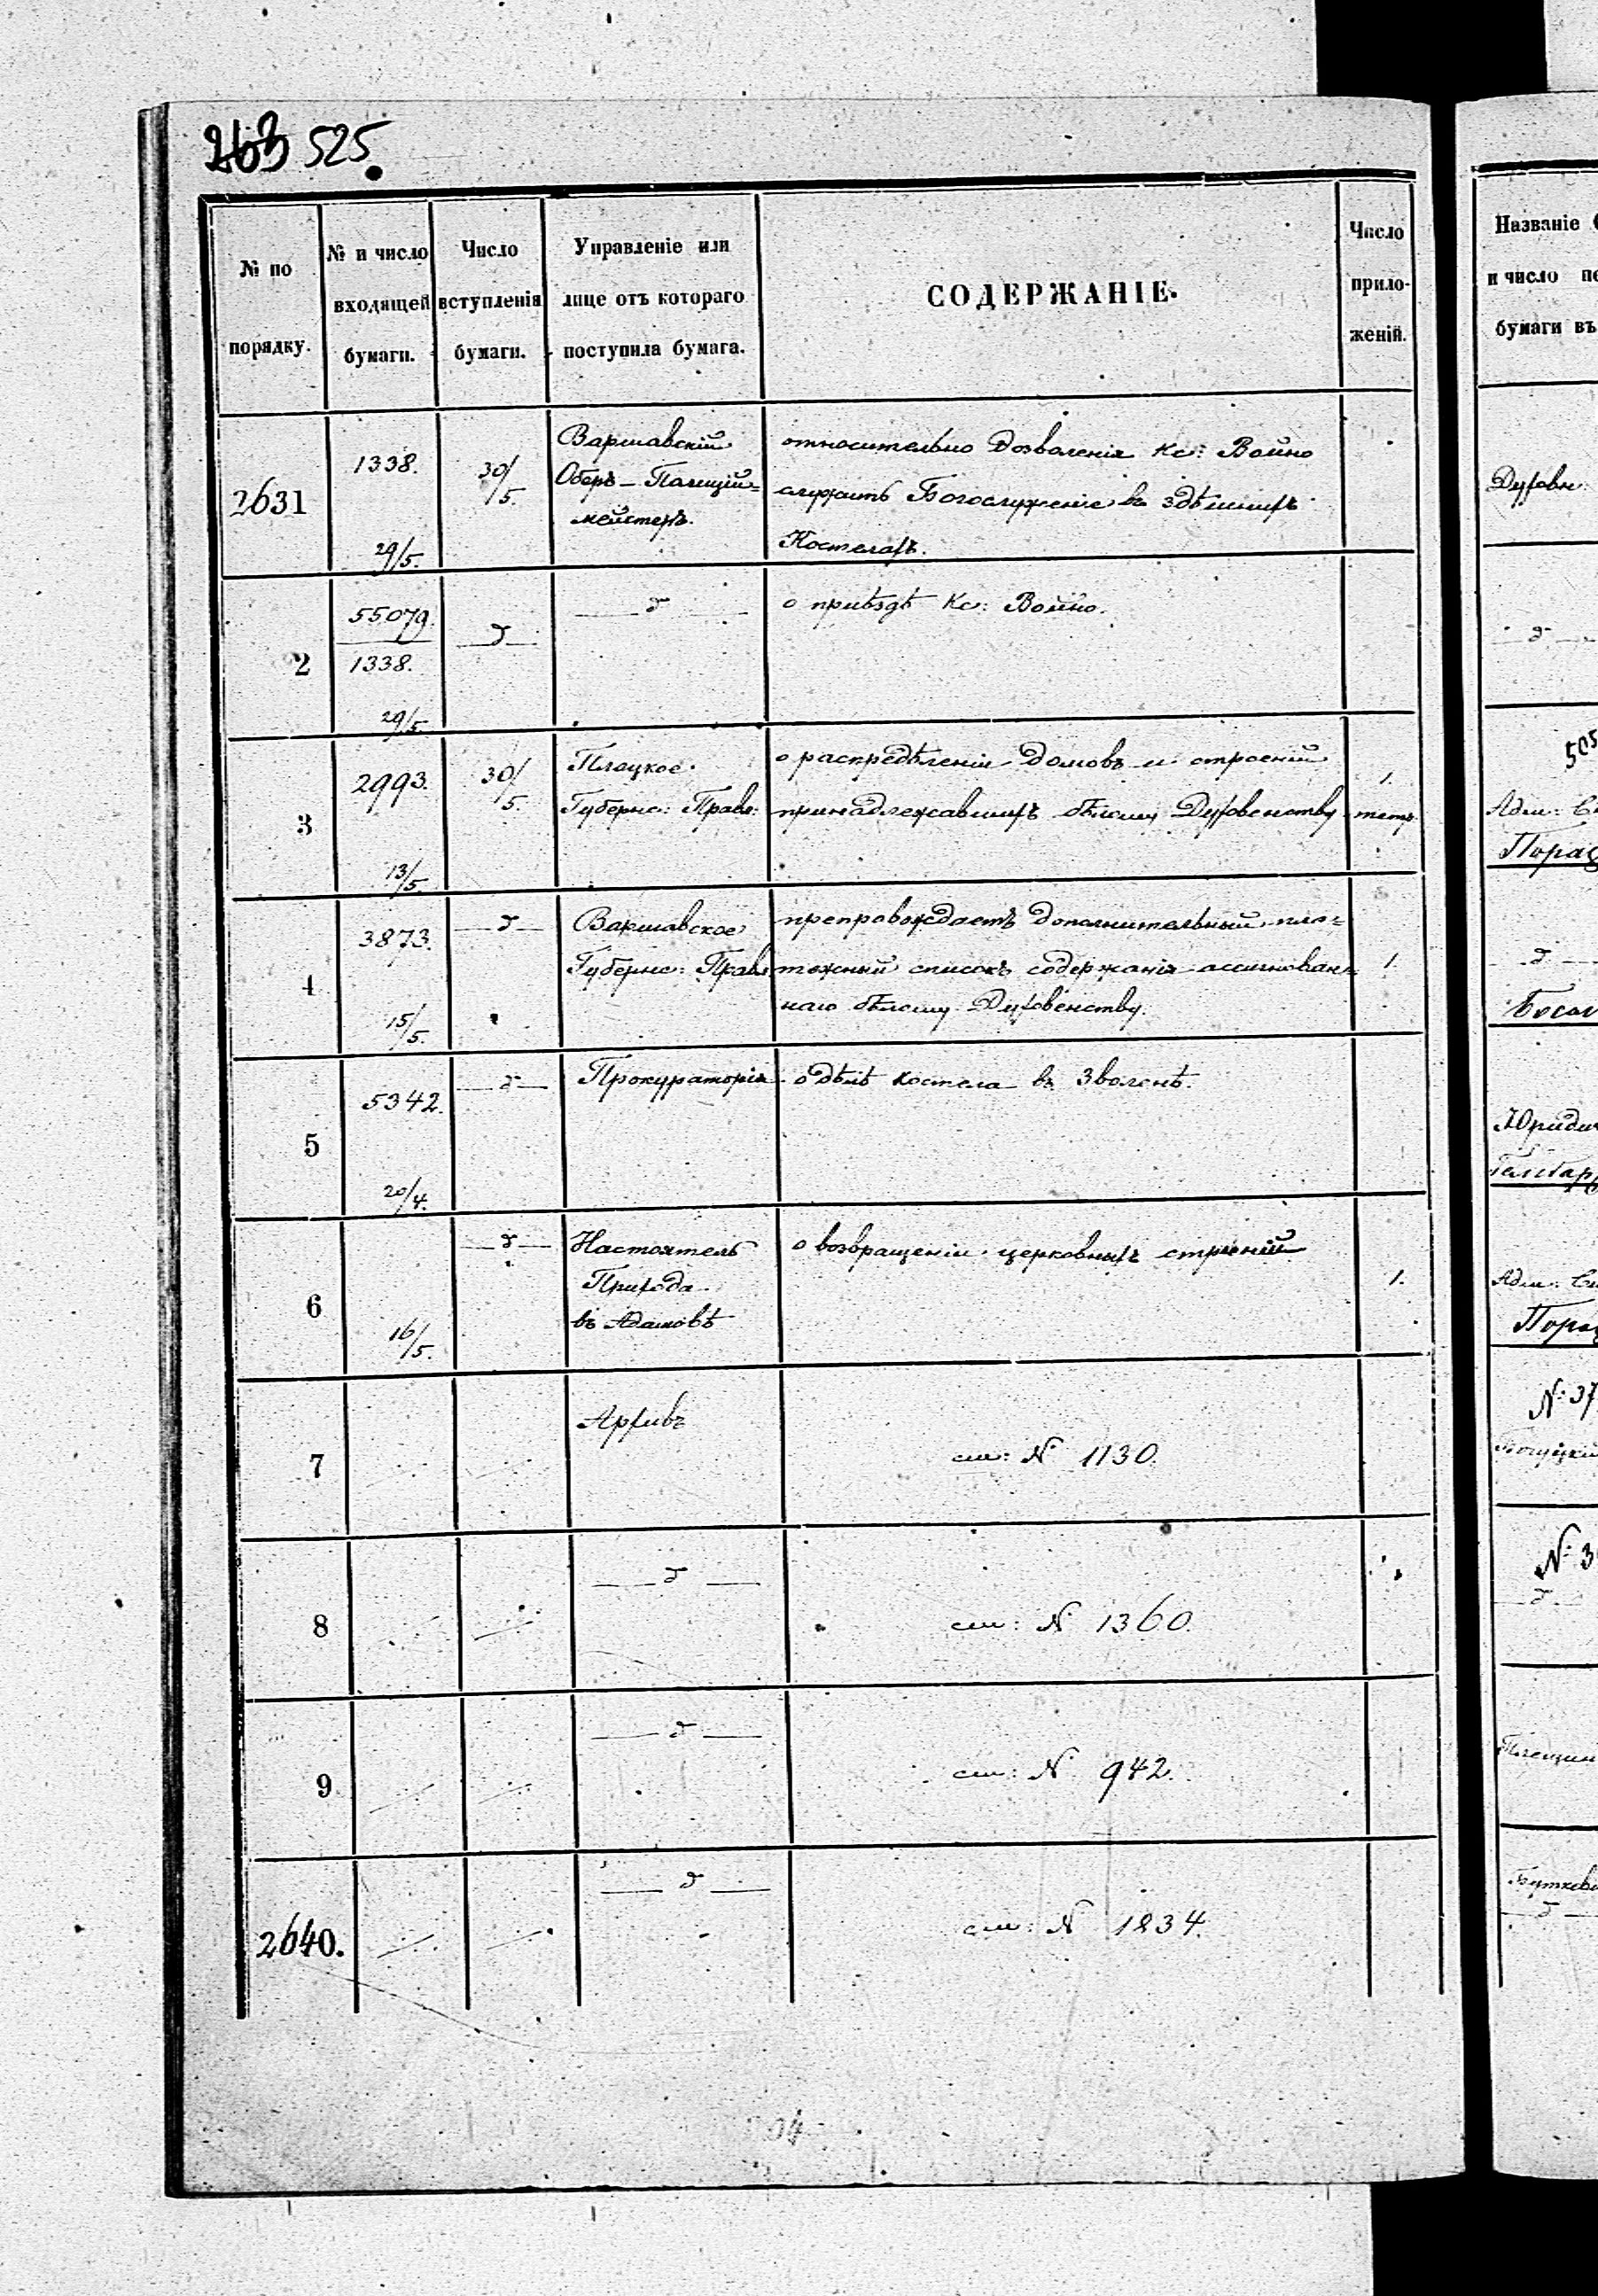 263 525.
№ по порядку.
№ и число входящей бумаги.
Число вступленія бумаги.
Управленіе или лице отъ котораго поступила бумага.
СОДЕРЖАНІЕ.
Число приложеній.
2631
1338.
29/5.
30/5.
Варшавскій
Оберъ-Полицій=
мейстеръ.
относительно дозволенія Кс: Война
служить Богослуженіе въ здѣшнихъ
Костелахъ.
2
55079.
1338.
29/5.
—д—
—д—
о пріѣздѣ Кс: Войно.
3
2993.
13/5.
30/5.
Плоцкое
Губернс: Правл:
о распредѣленіи домовъ и строеній
принадлежавшихъ бѣлому Духовенству
1.
тетр.
4
3873.
15/5.
—д—
Варшавское
Губернс: Правл
препровождаетъ дополнительный пла=
тежный списокъ содержанія ассигнован=
наго бѣлому Духовенству.
1.
5
5342.
20/4.
—д—
Прокураторія
о дѣлѣ костела въ Зволенѣ.
6
16/5.
—д—
Настоятель
Прихода
въ Адамовѣ
о возвращеніи церковныхъ строеній
1.
7
Архивъ
см: № 1130.
8
—д—
см: № 1360.
9
—д—
см: № 942.
2640.
—д—
см: № 1834.
Названіе
и число
бумаги въ
Духовн.
—д—
505
Адм:
—д—
Юриди
Адм:
Пора
№ 37
№ 3
—д—
—д—